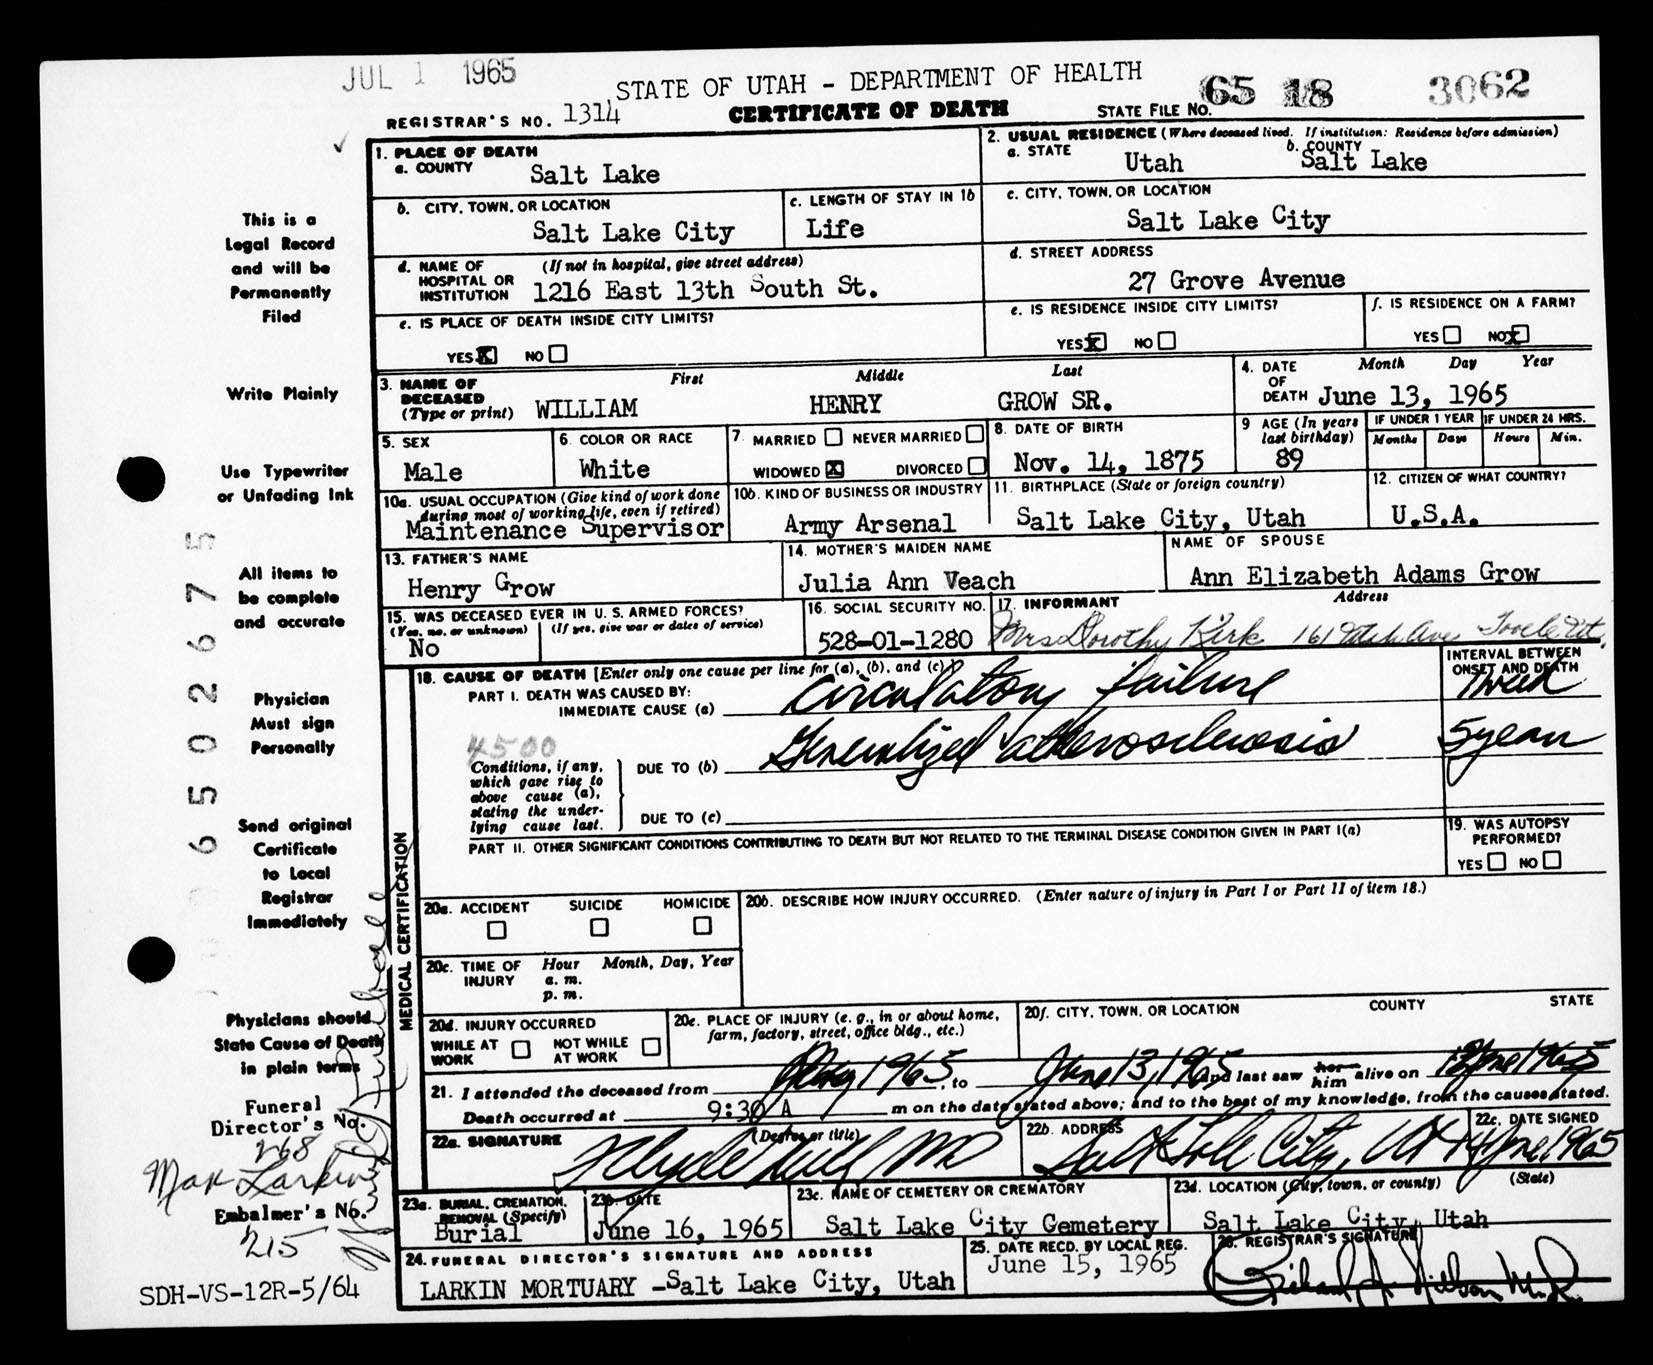 JUL 1 1965
STATE OF UTAH - DEPARTMENT OF HEALTH
65 18 3062
REGISTRAR'S NO. 1314
CERTIFICATE OF DEATH
STATE FILE NO.
1. PLACE OF DEATH
a. COUNTY
Salt Lake
2. USUAL RESIDENCE (Where deceased lived. If institution: Residence before admission)
a. STATE
Utah
b. COUNTY
Salt Lake
b. CITY, TOWN, OR LOCATION
Salt Lake City
c. LENGTH OF STAY IN 1b
Life
c. CITY, TOWN, OR LOCATION
Salt Lake City
d. NAME OF HOSPITAL OR INSTITUTION
(If not in hospital, give street address)
1216 East 13th South St.
d. STREET ADDRESS
27 Grove Avenue
e. IS PLACE OF DEATH INSIDE CITY LIMITS?
YES X NO
e. IS RESIDENCE INSIDE CITY LIMITS?
YES X NO
f. IS RESIDENCE ON A FARM?
YES NO X
3. NAME OF DECEASED (Type or print)
First Middle Last
WILLIAM HENRY GROW SR.
4. DATE OF DEATH
Month Day Year
June 13, 1965
5. SEX
Male
6. COLOR OR RACE
White
7. MARRIED NEVER MARRIED
WIDOWED X DIVORCED
8. DATE OF BIRTH
Nov. 14, 1875
9 AGE (In years last birthday)
89
IF UNDER 1 YEAR
Months Days
IF UNDER 24 HRS.
Hours Min.
10a. USUAL OCCUPATION (Give kind of work done during most of working life, even if retired)
Maintenance Supervisor
10b. KIND OF BUSINESS OR INDUSTRY
Army Arsenal
11. BIRTHPLACE (State or foreign country)
Salt Lake City, Utah
12. CITIZEN OF WHAT COUNTRY?
U.S.A.
13. FATHER'S NAME
Henry Grow
14. MOTHER'S MAIDEN NAME
Julia Ann Veach
NAME OF SPOUSE
Ann Elizabeth Adams Grow
15. WAS DECEASED EVER IN U. S. ARMED FORCES?
(Yes, no, or unknown) (If yes, give war or dates of service)
No
16. SOCIAL SECURITY NO.
528-01-1280
17. INFORMANT
Address
Mrs Dorothy Kirk 161 Utah Ave Tooele Ut.
MEDICAL CERTIFICATION
18. CAUSE OF DEATH [Enter only one cause per line for (a), (b), and (c)]
INTERVAL BETWEEN ONSET AND DEATH
PART I. DEATH WAS CAUSED BY:
IMMEDIATE CAUSE (a)
Circulatory failure
1 week
4500
Conditions, if any, which gave rise to above cause (a), stating the underlying cause last.
DUE TO (b)
Generalized atherosclerosis
5 years
DUE TO (c)
PART II. OTHER SIGNIFICANT CONDITIONS CONTRIBUTING TO DEATH BUT NOT RELATED TO THE TERMINAL DISEASE CONDITION GIVEN IN PART I(a)
19. WAS AUTOPSY PERFORMED?
YES NO
20a. ACCIDENT SUICIDE HOMICIDE
20b. DESCRIBE HOW INJURY OCCURRED. (Enter nature of injury in Part I or Part II of item 18.)
20c. TIME OF INJURY
Hour Month, Day, Year
a. m.
p. m.
20d. INJURY OCCURRED
WHILE AT WORK NOT WHILE AT WORK
20e. PLACE OF INJURY (e. g., in or about home, farm, factory, street, office bldg., etc.)
20f. CITY, TOWN, OR LOCATION COUNTY STATE
21. I attended the deceased from 1965, to June 13, 1965 and last saw her him alive on June 1965
Death occurred at 9:30 A m on the date stated above; and to the best of my knowledge, from the causes stated.
22a. SIGNATURE
(Degree or title)
MD
22b. ADDRESS
Salt Lake City, Ut
22c. DATE SIGNED
14 June 1965
23a. BURIAL, CREMATION, REMOVAL (Specify)
Burial
23b. DATE
June 16, 1965
23c. NAME OF CEMETERY OR CREMATORY
Salt Lake City Cemetery
23d. LOCATION (City, town, or county) (State)
Salt Lake City, Utah
24. FUNERAL DIRECTOR'S SIGNATURE AND ADDRESS
LARKIN MORTUARY -Salt Lake City, Utah
25. DATE RECD. BY LOCAL REG.
June 15, 1965
26. REGISTRAR'S SIGNATURE
Richard A. Nilson M.D.
This is a
Legal Record
and will be
Permanently
Filed
Write Plainly
Use Typewriter
or Unfading Ink
All items to
be complete
and accurate
Physician
Must sign
Personally
Send original
Certificate
to Local
Registrar
Immediately
Physicians should
State Cause of Death
in plain terms
Funeral
Director's No.
268
Max Larkin
Embalmer's No.
215
6502675
SDH-VS-12R-5/64